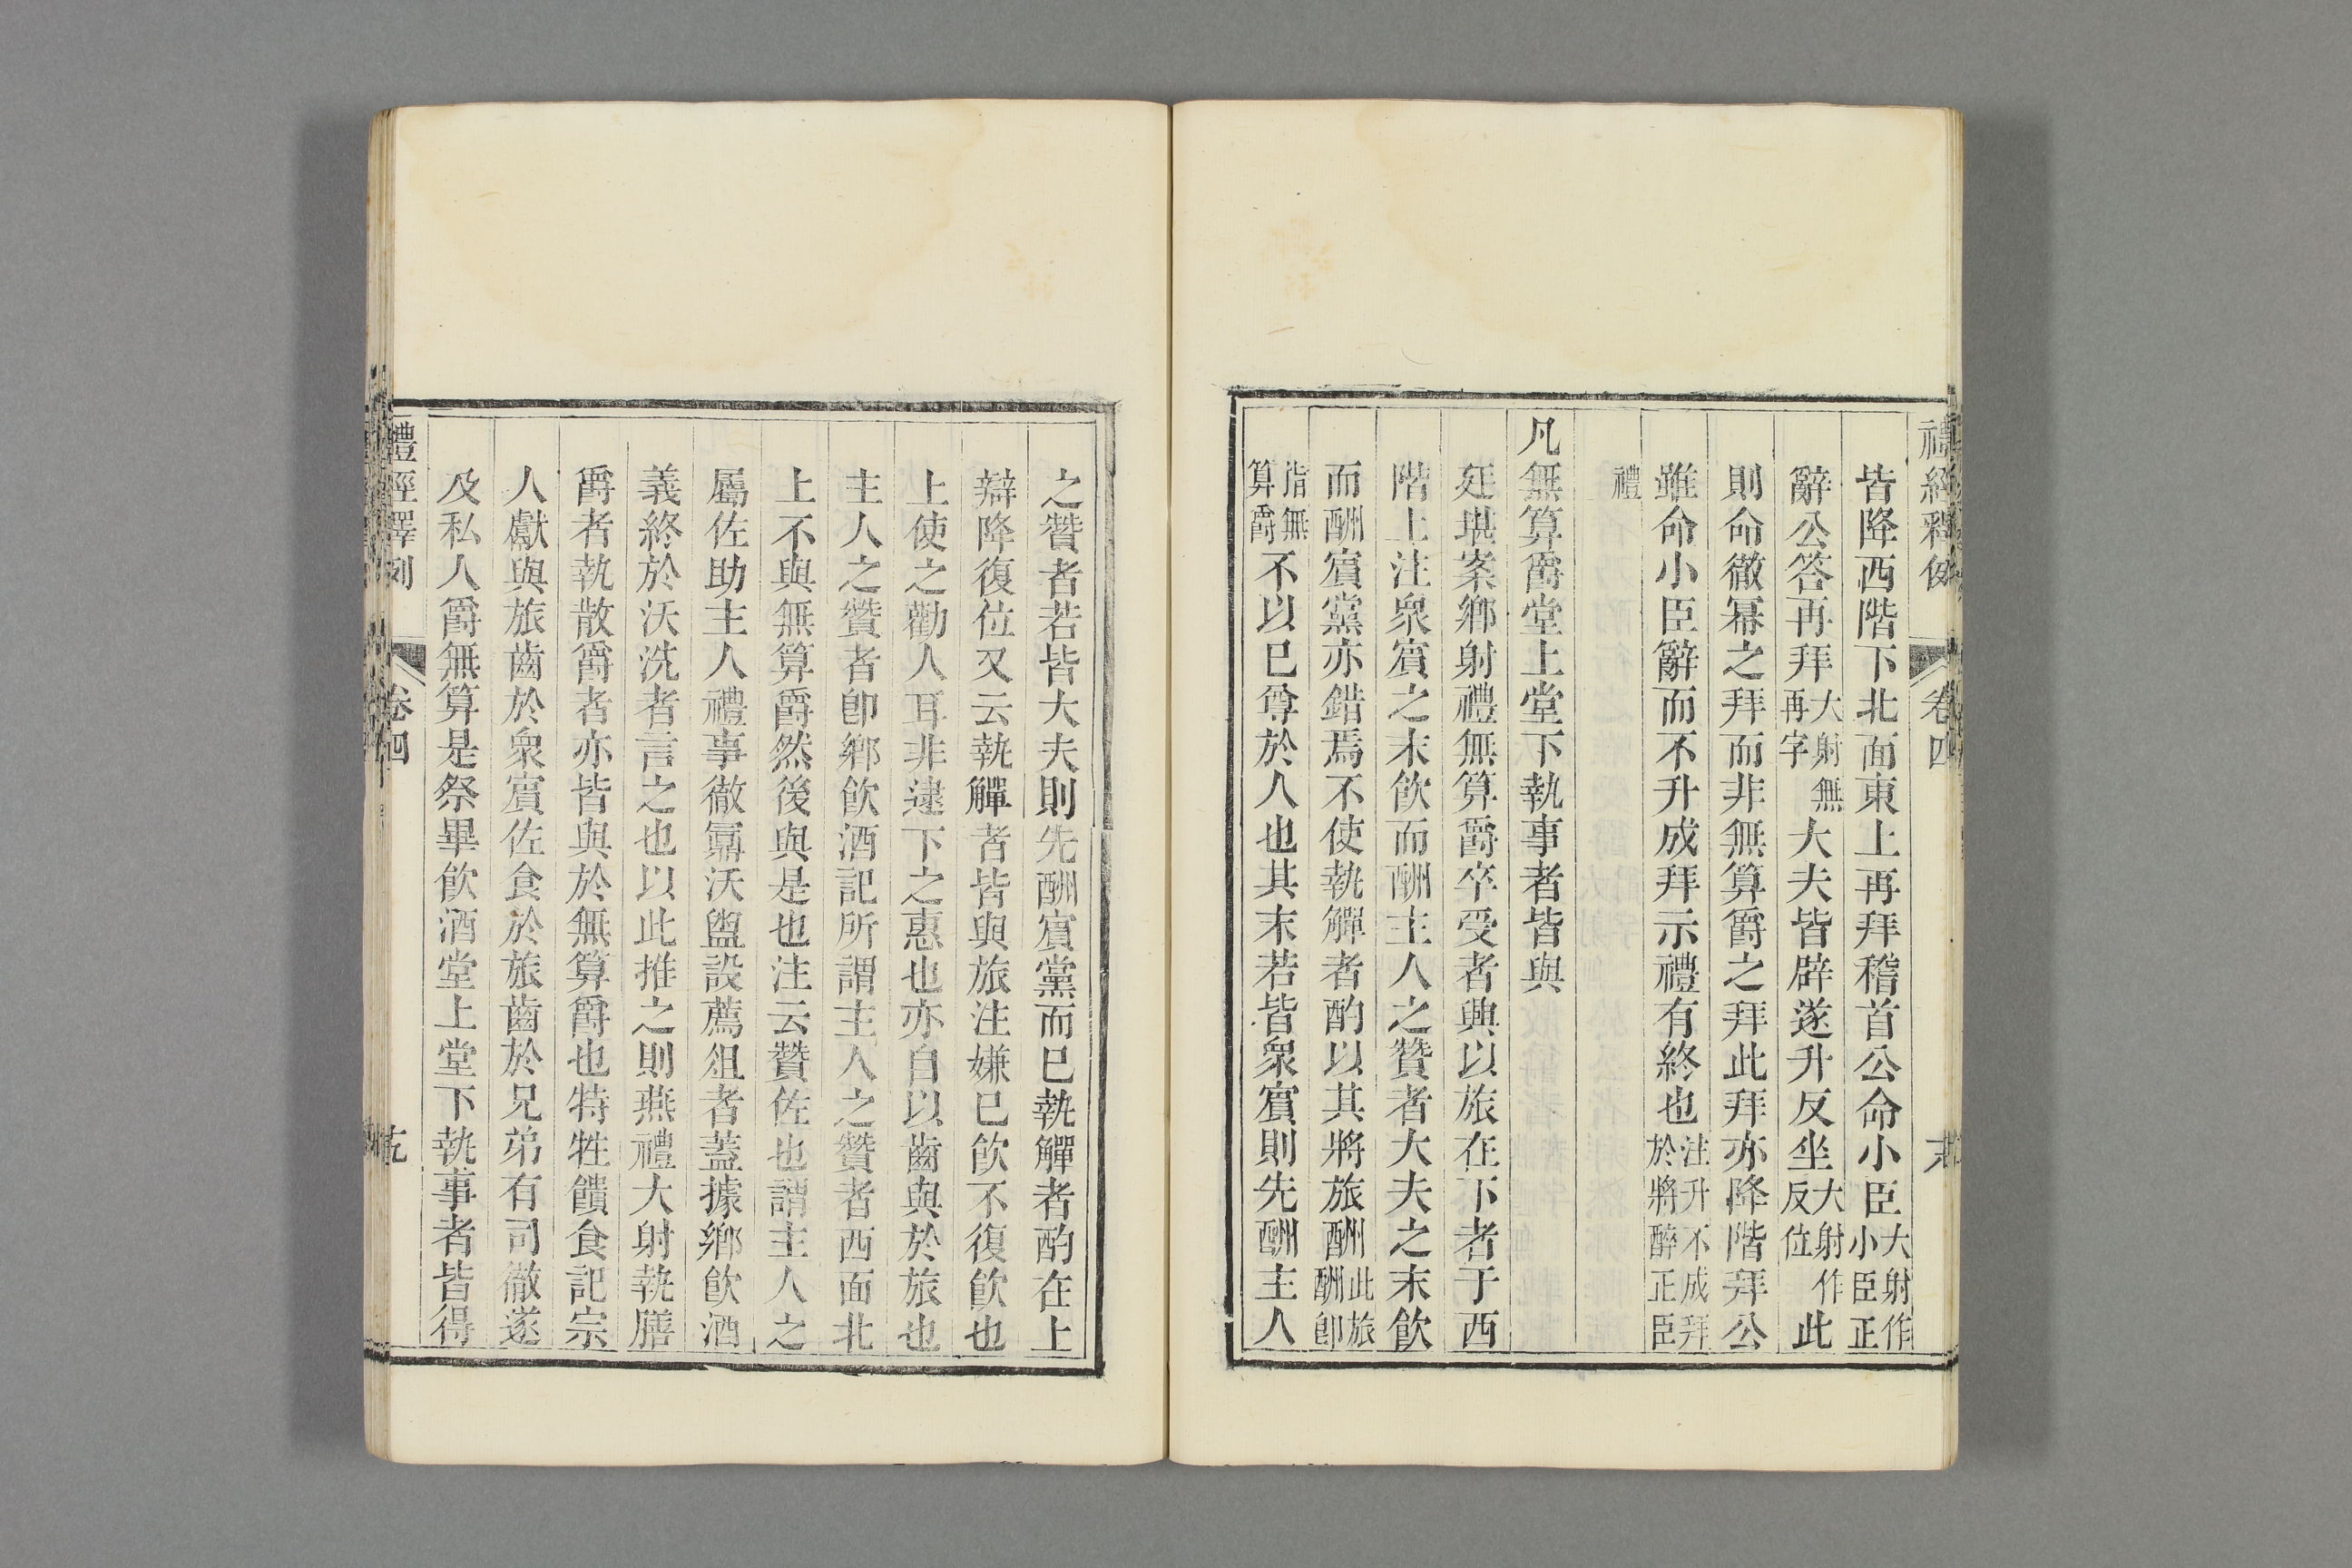 禮經釋例 卷四
皆降西階下北面東上再拜稽首公命小臣大射作小臣正
辭公答再拜大射無再字大夫皆辟遂升反坐大射作反位此
則命徹冪之拜而非無算爵之拜此拜亦降階拜公
雖命小臣辭而不升成拜示禮有終也注升不成拜於將醉正臣
禮
凡無算爵堂上堂下執事者皆與
廷堪案鄉射禮無算爵卒受者興以旅在下者于西
階上注衆賓之末飲而酬主人之贊者大夫之末飲
而酬賓黨亦錯焉不使執觶者酌以其將旅酬此旅酬卽
指無算爵不以已尊於人也其末若皆衆賓則先酬主人
之贊者若皆大夫則先酬賓黨而已執觶者酌在上
辯降復位又云執觶者皆與旅注嫌已飲不復飲也
上使之勸人耳非逮下之惠也亦自以齒與於旅也
主人之贊者卽鄉飲酒記所謂主人之贊者西面北
上不與無算爵然後與是也注云贊佐也謂主人之
屬佐助主人禮事徹鼏沃盥設薦俎者蓋據鄉飲酒
義終於沃洗者言之也以此推之則燕禮大射執膳
爵者執散爵者亦皆與於無算爵也特牲饋食記宗
人獻與旅齒於衆賓佐食於旅齒於兄弟有司徹遂
及私人爵無算是祭畢飲酒堂上堂下執事者皆得
禮經釋例 卷四